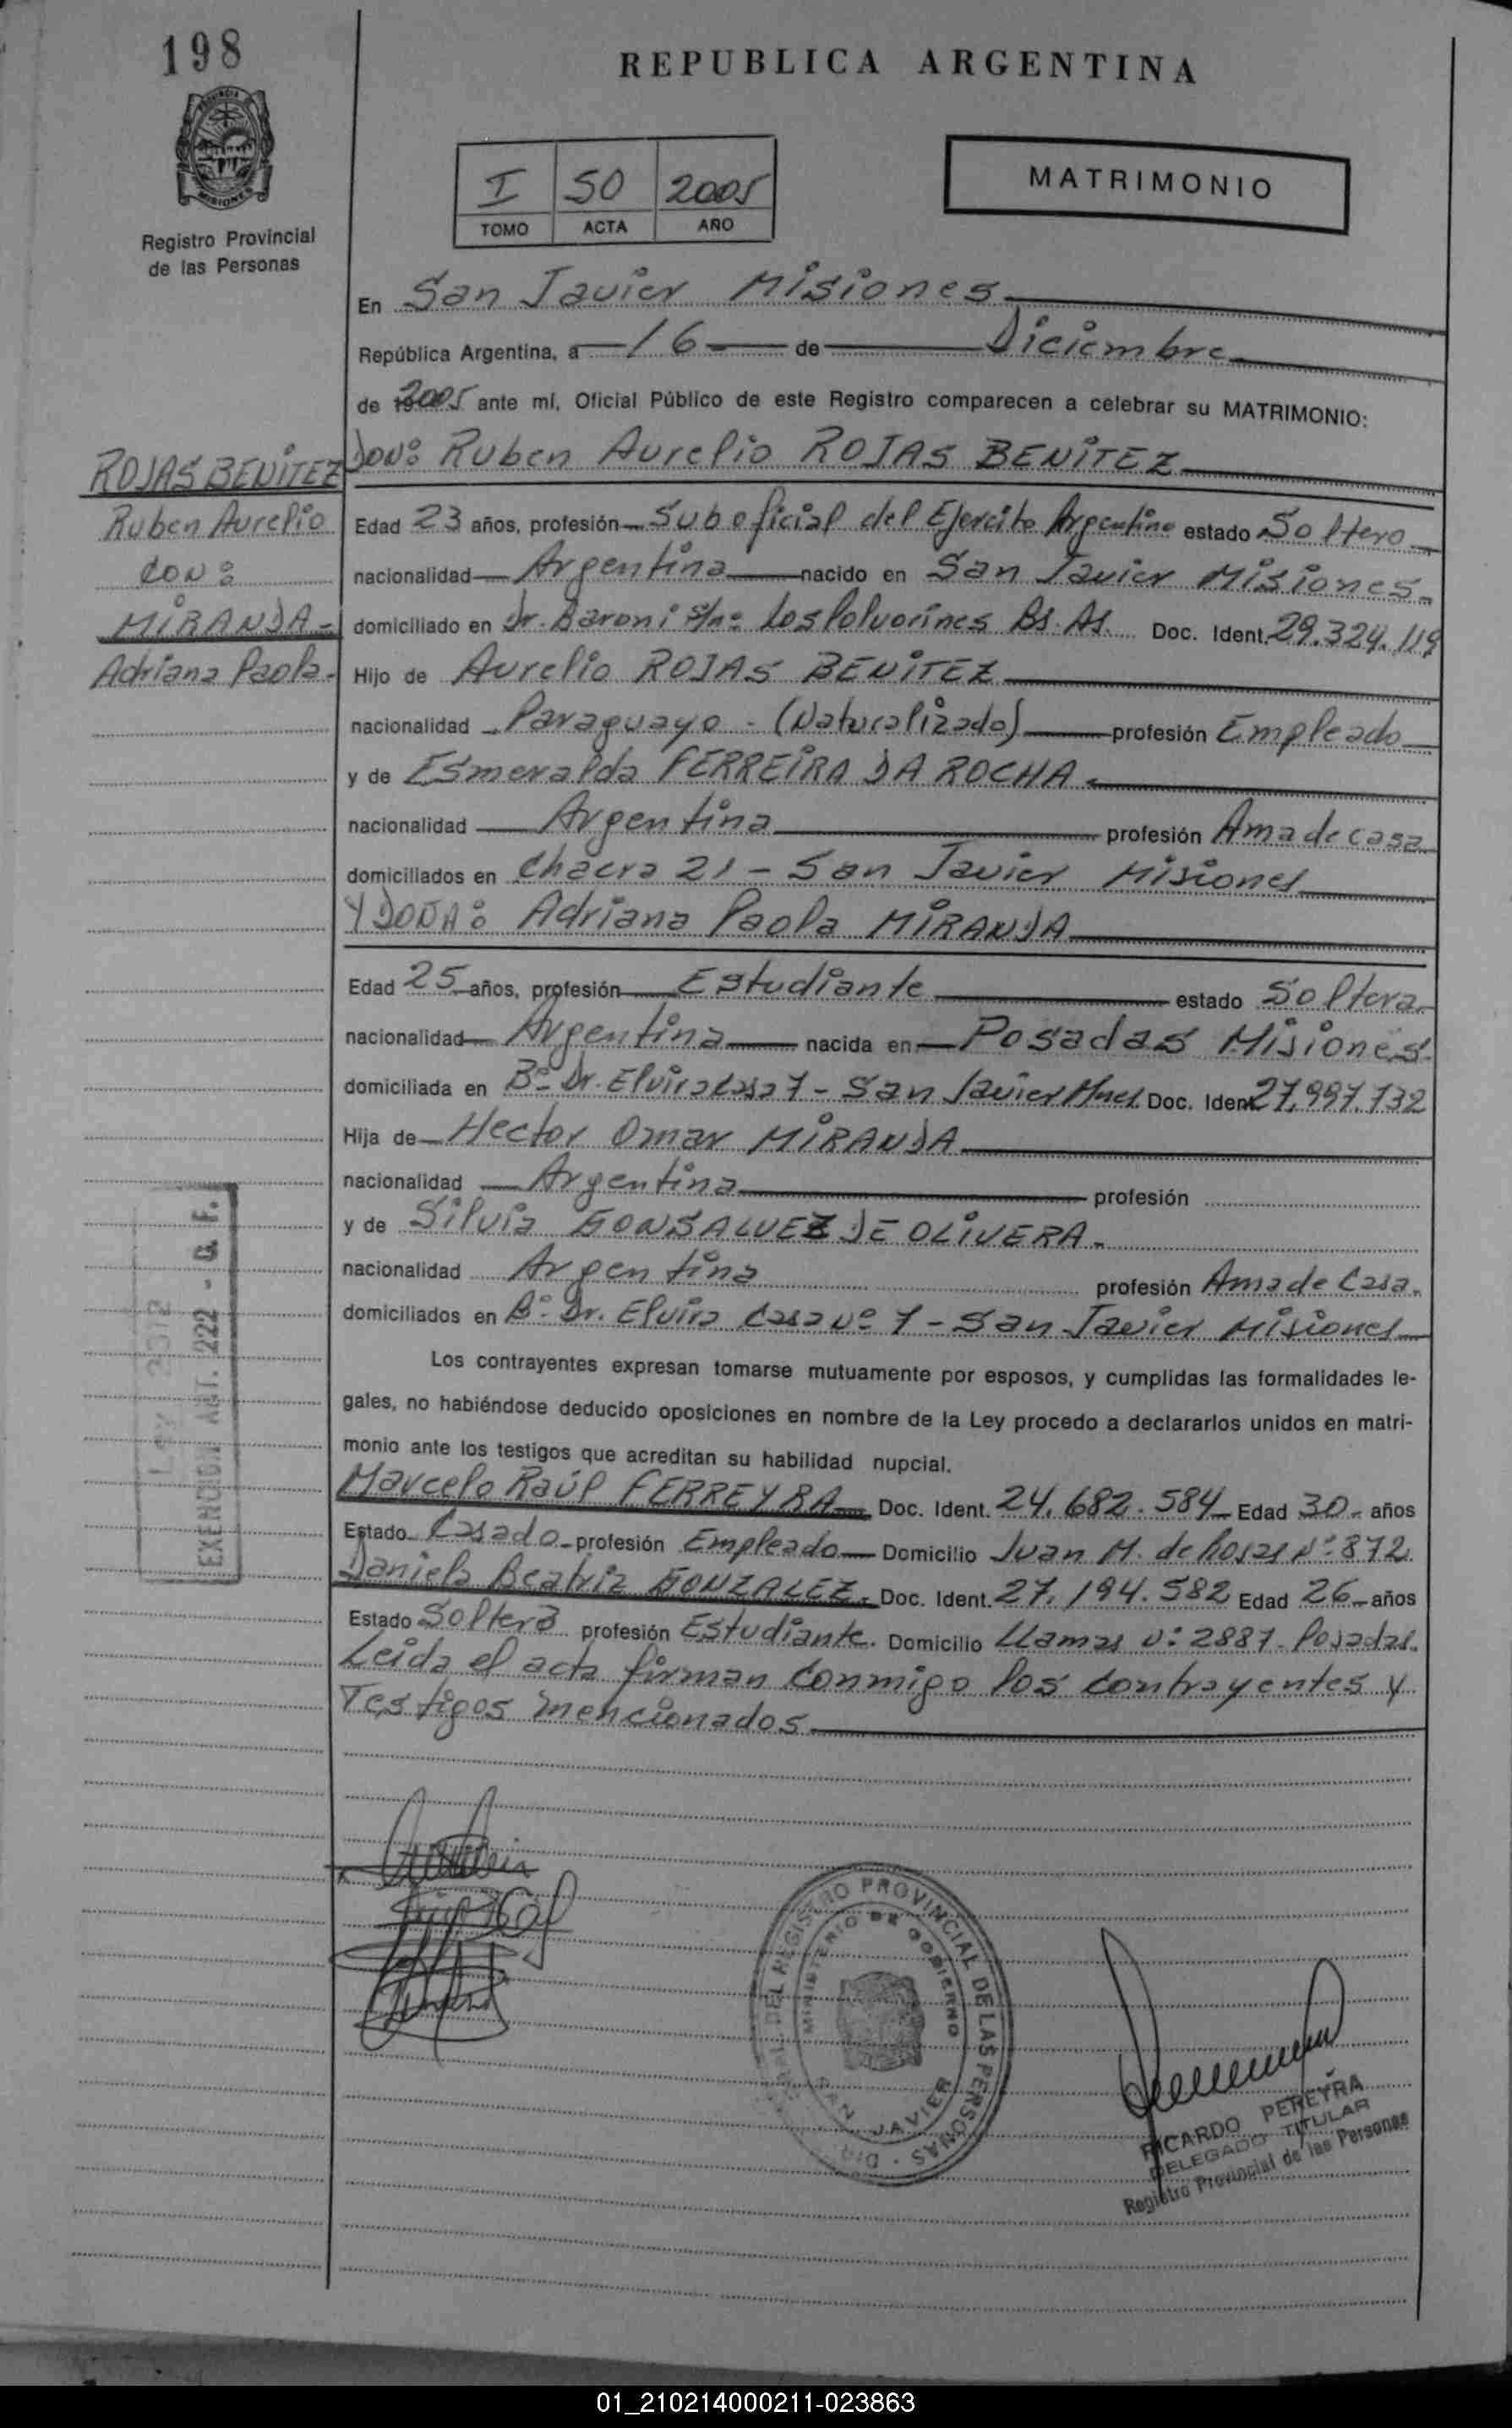 198
REPUBLICA ARGENTINA
PROVINCIA DE
MISIONES
Registro Provincial
de las Personas
I 50 2005
TOMO ACTA AÑO
MATRIMONIO
En San Javier Misiones
República Argentina, a 16 de Diciembre
de 2005 ante mí, Oficial Público de este Registro comparecen a celebrar su MATRIMONIO:
ROJAS BENITEZ
Ruben Aurelio
CON:
MIRANDA-
Adriana Paola.
DON: Ruben Aurelio ROJAS BENITEZ
Edad 23 años, profesión Suboficial del Ejercito Argentino estado Soltero
nacionalidad Argentina nacido en San Javier Misiones
domiciliado en Dr. Baroni s/n: Los Polvorines Bs. As. Doc. Ident. 29.324.119
Hijo de Aurelio ROJAS BENITEZ
nacionalidad Paraguayo - (Naturalizado) profesión Empleado
y de Esmeralda FERREIRA DA ROCHA.
nacionalidad Argentina profesión Ama de casa
domiciliados en Chacra 21 - San Javier Misiones
Y DOÑA: Adriana Paola MIRANDA
Edad 25 años, profesión Estudiante estado Soltera
nacionalidad Argentina nacida en Posadas Misiones
domiciliada en Bº Dr. Elvira casa 7 - San Javier Mnes. Doc. Ident. 27.997.732
Hija de Hector Omar MIRANDA
nacionalidad Argentina profesión
y de Silvia GONSALVEZ DE OLIVERA.
nacionalidad Argentina profesión Ama de Casa.
domiciliados en Bº Dr. Elvira Casa Nº 7 - San Javier Misiones
Los contrayentes expresan tomarse mutuamente por esposos, y cumplidas las formalidades le-
gales, no habiéndose deducido oposiciones en nombre de la Ley procedo a declararlos unidos en matri-
monio ante los testigos que acreditan su habilidad nupcial.
Marcelo Raúl FERREYRA Doc. Ident. 24.682.584 Edad 30 años
Estado Casado profesión Empleado Domicilio Juan M. de Rosas Nº 872
Daniela Beatriz GONZALEZ. Doc. Ident. 27.194.582 Edad 26 años
Estado Soltera profesión Estudiante. Domicilio Llamas Nº 2887. Posadas.
Leida el acta firman conmigo los contrayentes y
Testigos mencionados
EXENCION ART. 222 - Q. F.
DEL REGISTRO PROVINCIAL DE LAS PERSONAS
MINISTERIO DE GOBIERNO
SAN JAVIER
RICARDO PEREYRA
DELEGADO TITULAR
Registro Provincial de las Personas
01_210214000211-023863